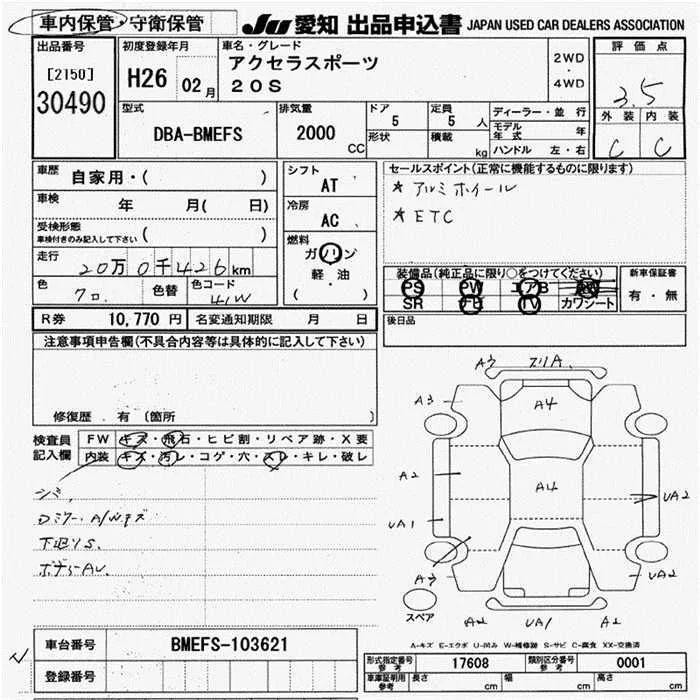 車内保管・守衛保管
JU 愛知 出品申込書 JAPAN USED CAR DEALERS ASSOCIATION
出品番号
[2150]
30490
初度登録年月
H26 02月
車名・グレード
アクセラスポーツ
20S
2WD
・
4WD
評価点
3.5
外装 内装
C C
型式
DBA-BMEFS
排気量
2000 CC
ドア 5
形状
定員 5 人
積載 kg
ディーラー・並行
モデル年式 年
ハンドル 左・右
車歴 自家用・( )
車検 年 月( 日)
受検形態
車検付きのみ記入して下さい ( )
走行 20万0千426km
色 クロ
色替
色コード 41W
シフト
AT
冷房
AC
燃料
ガソリン
軽・油
( )
セールスポイント(正常に機能するものに限ります)
* アルミホイール
* ETC
装備品(純正品に限り○をつけてください)
PS PW エアB
SR ナビ TV カワシート
新車保証書
有・無
後日品
R券 10,770 円 名変通知期限 月 日
注意事項申告欄(不具合内容等は具体的に記入して下さい)
修復歴 有 〔箇所 〕
検査員記入欄
FW キズ・飛石・ヒビ割・リペア跡・X要
内装 キズ・汚レ・コゲ・穴・スレ・キレ・破レ
シミ
Dミラー、A/Wキズ
下廻りS.
ボデーAU.
A3
A3 A4
A2 A4 UA2
UA1
A3 UA2
スペア
A2 UA1 A2
A-キズ E-エクボ U-凹み W-補修跡 S-サビ C-腐食 XX-交換済
車台番号 BMEFS-103621
登録番号
形式指定番号 参考 17608 類別区分番号 参考 0001
車庫証明用 参考 長さ cm 幅 cm 高さ cm